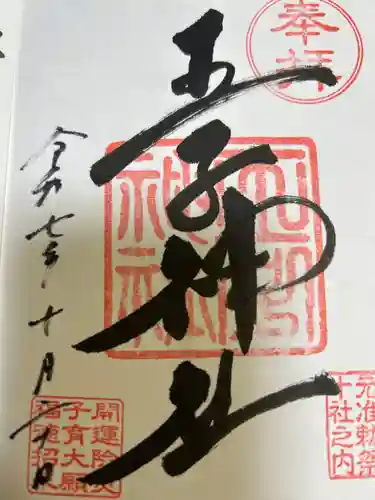 奉拝
王子神社
王子神社
元准勅祭
十社之内
開運除災
子育大願
福徳招来
令和七年十月二十日